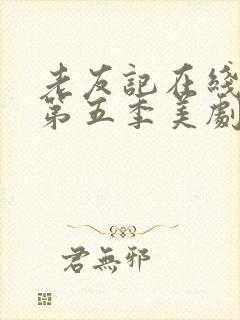 老友記在綫
第五季美劇
君無邪